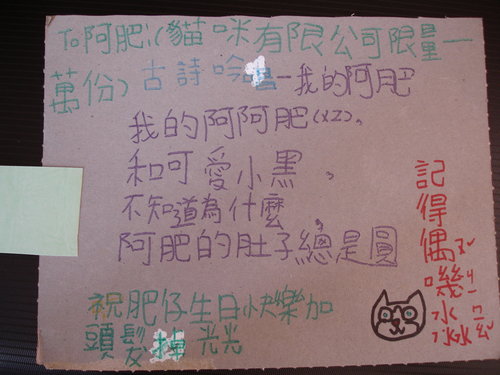 To阿肥:(貓咪有限公司限量一
萬份)古詩吟—我的阿肥
我的阿阿肥(x2)。
和可愛小黑,
不知道為什麼,
阿肥的肚子總是圓
祝肥仔生日快樂加
頭髮掉光光
記得偶嘰水